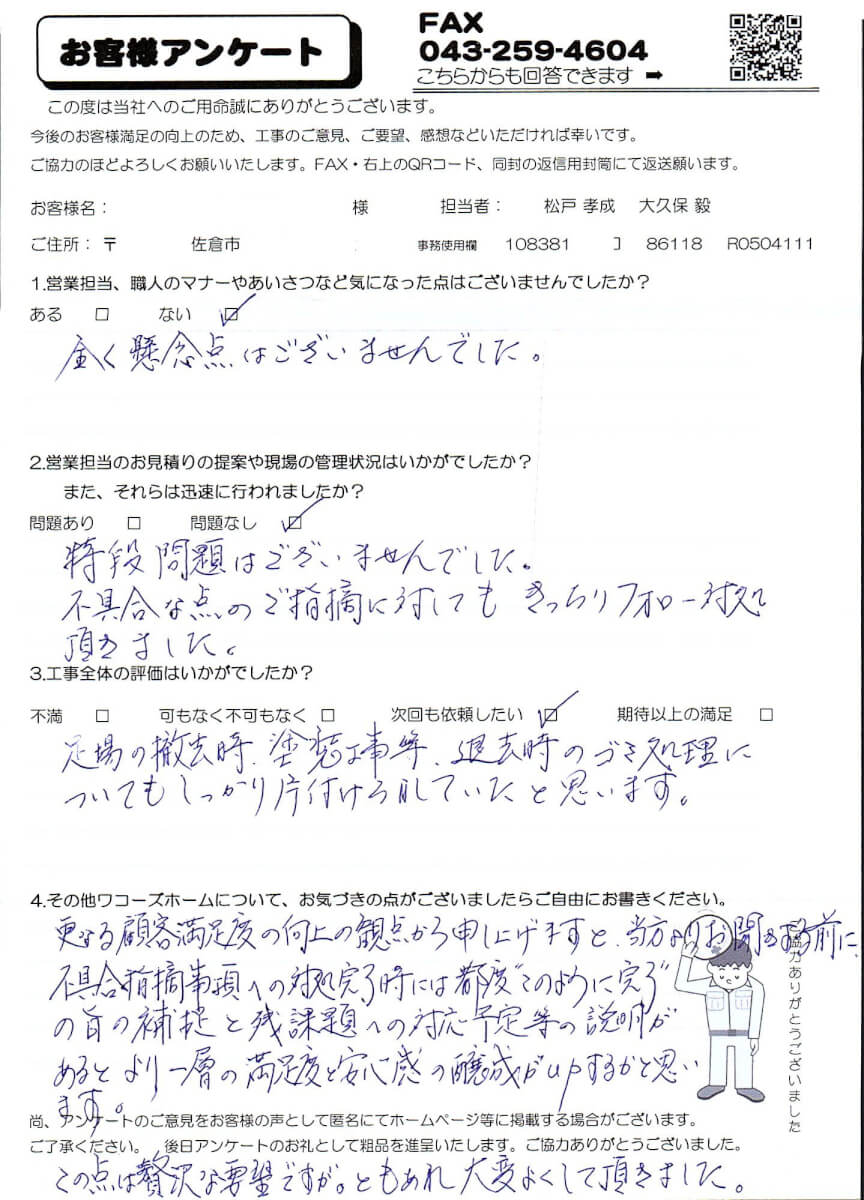 お客様アンケート
FAX
043-259-4604
こちらからも回答できます ➡
この度は当社へのご用命誠にありがとうございます。
今後のお客様満足の向上のため、工事のご意見、ご要望、感想などいただければ幸いです。
ご協力のほどよろしくお願いいたします。FAX・右上のQRコード、同封の返信用封筒にて返送願います。
お客様名： 様 担当者： 松戸 孝成 大久保 毅
ご住所：〒 佐倉市 事務使用欄 108381 J 86118 R0504111
1.営業担当、職人のマナーやあいさつなど気になった点はございませんでしたか？
ある □ ない ☑
全く懸念点はございませんでした。
2.営業担当のお見積りの提案や現場の管理状況はいかがでしたか？
また、それらは迅速に行われましたか？
問題あり □ 問題なし ☑
特段問題はございませんでした。
不具合な点のご指摘に対しても きっちりフォロー対処
頂きました。
3.工事全体の評価はいかがでしたか？
不満 □ 可もなく不可もなく □ 次回も依頼したい ☑ 期待以上の満足 □
足場の撤去時、塗装工事等、退去時のゴミ処理に
ついてもしっかり片付けろ目していたと思います。
4.その他ワコーズホームについて、お気づきの点がございましたらご自由にお書きください。
更なる顧客満足度の向上の観点から申し上げますと、当方よりお聞きする前に、
不具合指摘事項への対処完了時には都度"このように完了"
の旨の補足と残課題への対応予定等の説明が
あるとより一層の満足度と安心感の醸成がupするかと思い
ます。
ご協力ありがとうございました
尚、アンケートのご意見をお客様の声として匿名にてホームページ等に掲載する場合がございます。
ご了承ください。 後日アンケートのお礼として粗品を進呈いたします。ご協力ありがとうございました。
この点は贅沢な要望ですが。ともあれ大変よくして頂きました。